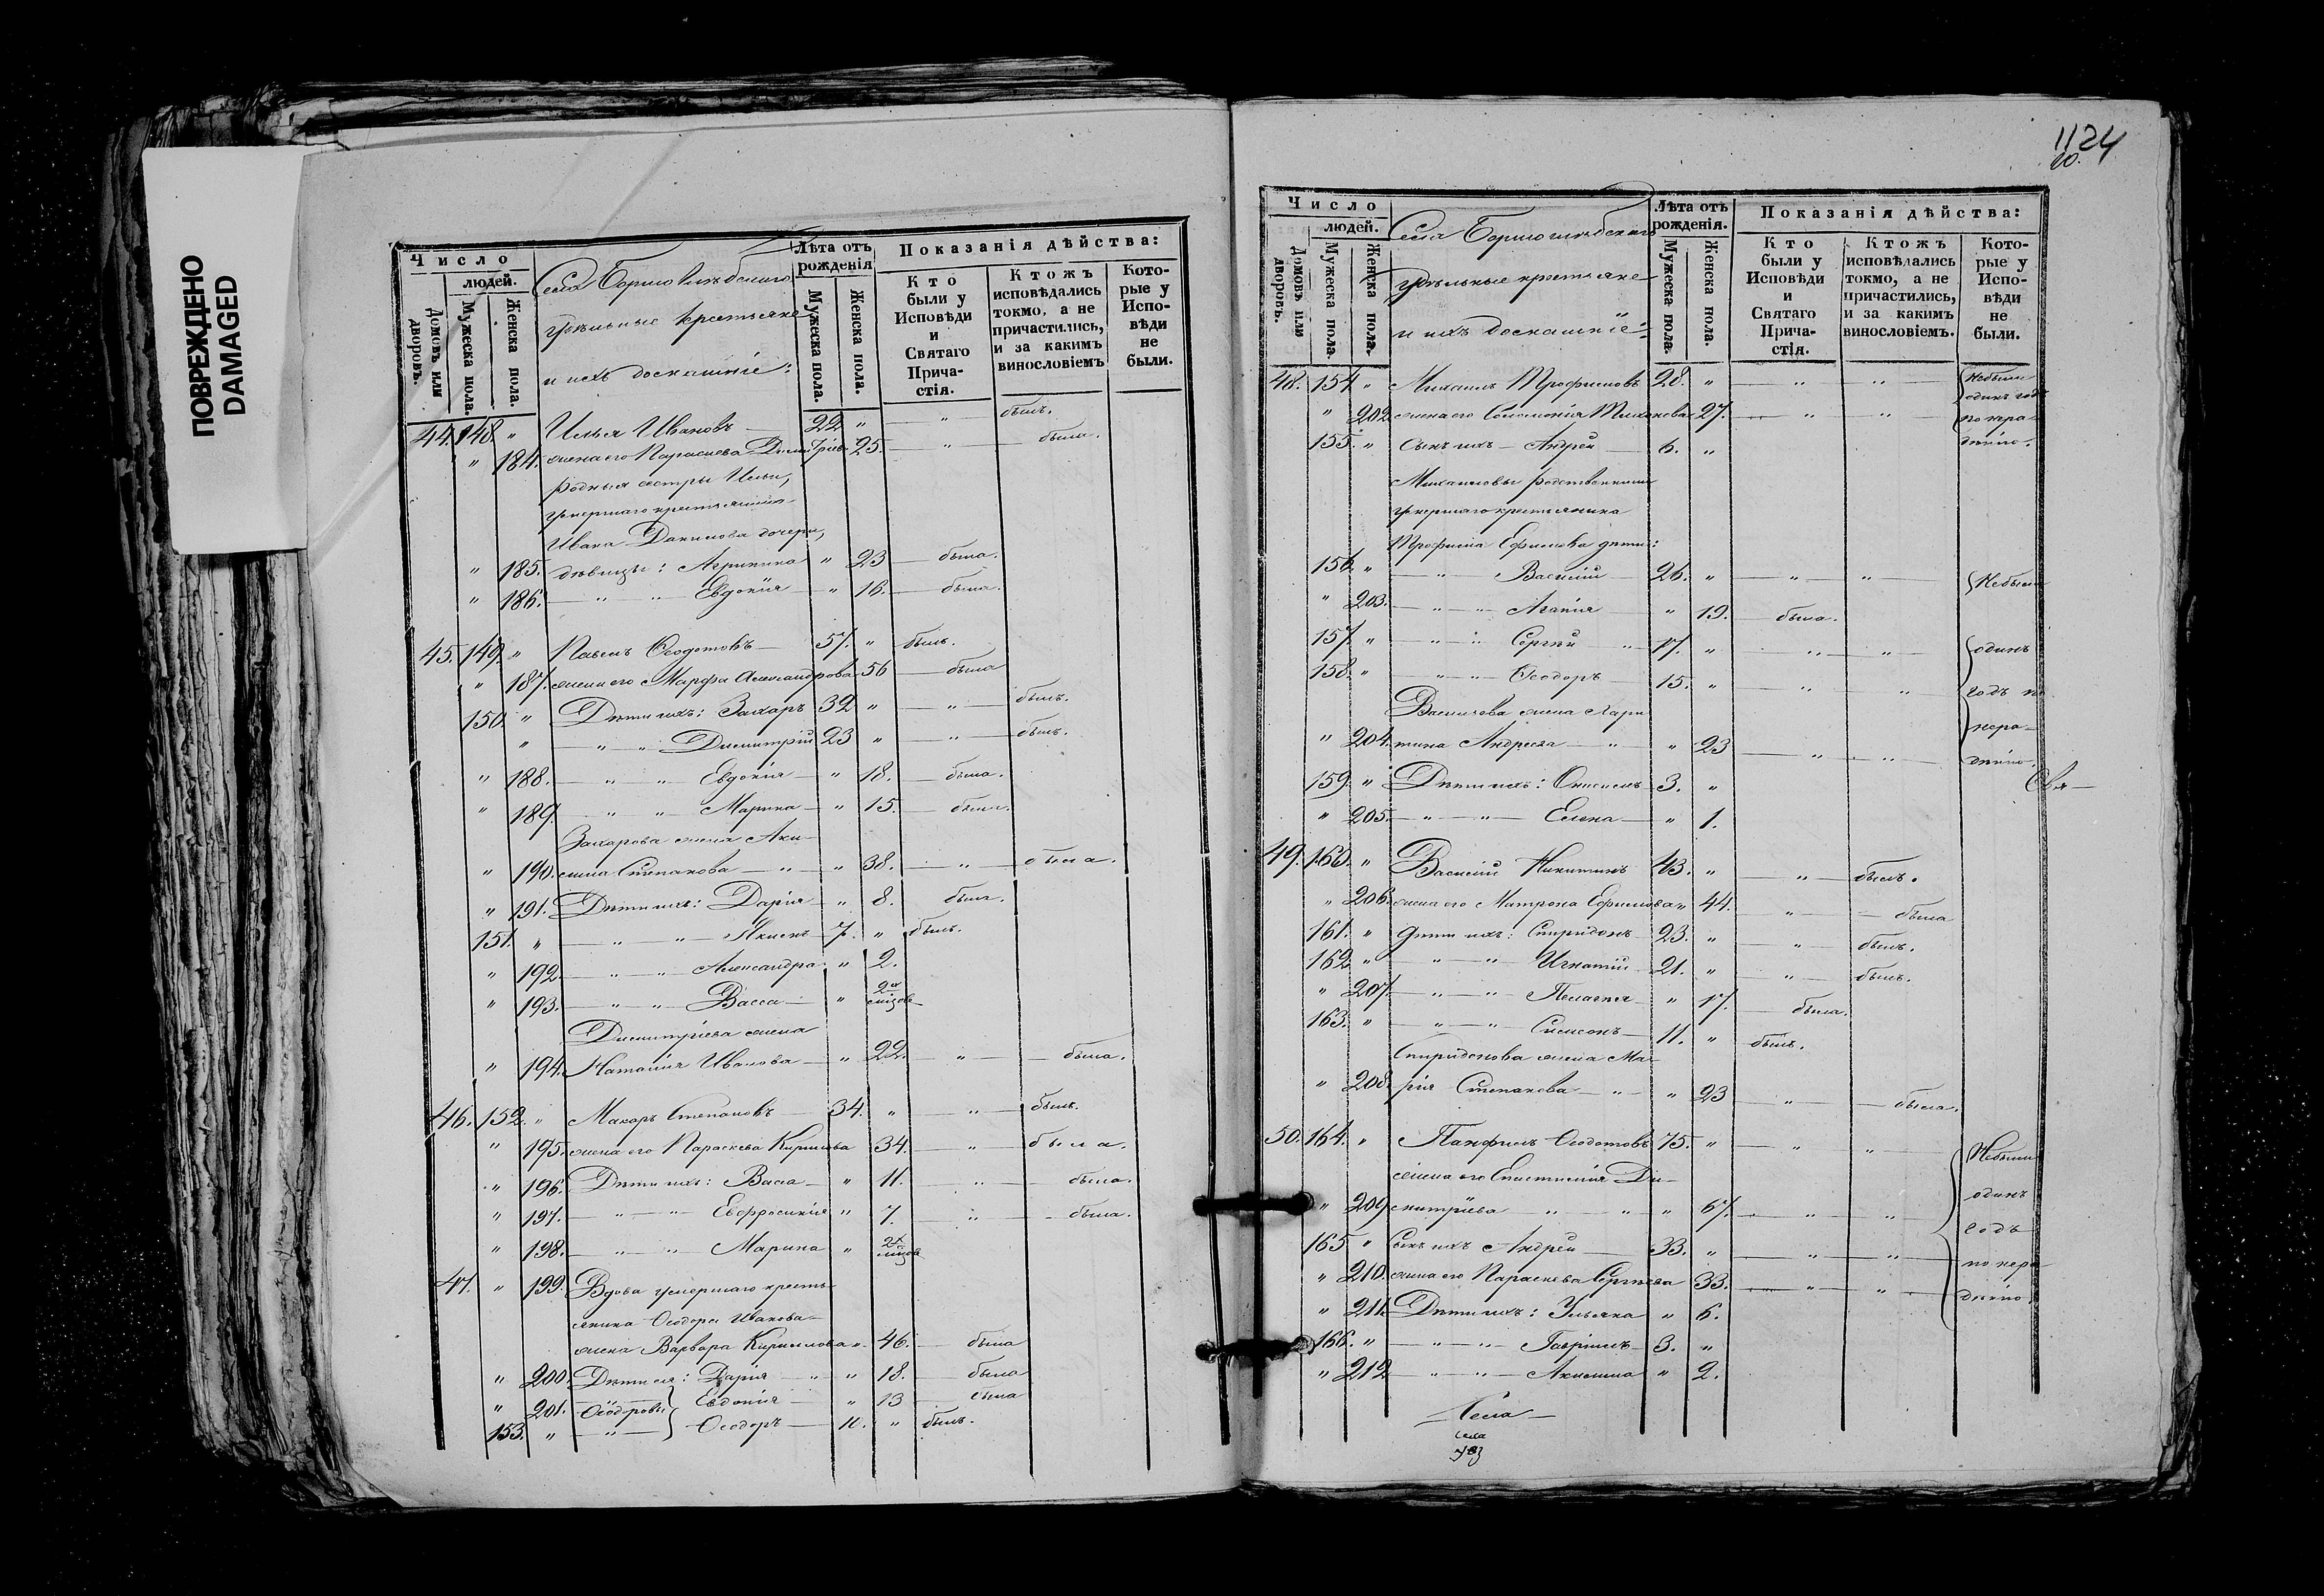 ПОВРЕЖДЕНО
DAMAGED
Число
людей.
Домовъ или дворовъ.
Мужеска пола.
Женска пола.
Села
удѣльные крестьяне
и ихъ домашніе:
Лѣта отъ рожденія
Мужеска пола.
Женска пола.
Показанія дѣйства:
Кто были у Исповѣди и Святаго Прича-стія.
Ктожъ исповѣдались токмо, а не причастились, и за какимъ винословіемъ
Кото-рые у Испо-вѣди не были.
44. 148. " Илья Ивановъ — 22 " — " — былъ.
" 184. жена его Параскева 25. — " — была.
родныя сестры Ильи,
умершаго крестьянина
Ивана Данилова дочери,
" 185. дѣвицы: Агрипина " 23 — была.
" 186. — " — " Евдокія — " 16. — была.
45. 149. " Павелъ Ѳеодотовъ — 57. " былъ.
" 187. жена его Марфа Александрова 56 — была
150. " Дѣти ихъ: Захаръ 32 " — " — былъ.
" — " " Димитрій 23 " — " — былъ.
" 188. — " — " Евдокія — " 18. — была.
" 189. — " — " Марина — " 15. — была.
Захарова жена Аки-
" 190. лина Степанова — " — " 38. — " — была.
" 191. Дѣти ихъ: Дарія — " 8. была.
151. " — " — " Якимъ — 7. " былъ.
" 192. — " — " Александра " 2.
" 193. — " — " Васса — " 2
Димитріева жена
" 194. Наталія Иванова — " 22. — " — была.
46. 152. " Макаръ Степановъ — 34. " — " — былъ.
" 195. жена его Параскева Кирилова 34. — " — была.
" 196. Дѣти ихъ: Васса — " 11. — " — была.
" 197. — " — " Евфросинія " 7. — " — была.
" 198. — " — " Марина "
47. " 199. Вдова умершаго кресть-
янина Ѳеодора Иванова
жена Варвара Кирилова " 46. — была
" 200. Дѣти ея: Дарія — " " 18. — была
" 201. Ѳеодоровы } Евдокія — " 13 — была
153. " — " — } Ѳеодоръ — 10. " былъ.
1124
20.
Число
людей.
Домовъ или дворовъ.
Мужеска пола.
Женска пола.
Села
удѣльные крестьяне
и ихъ домашніе:
Лѣта отъ рожденія.
Мужеска пола.
Женска пола.
Показанія дѣйства:
Кто были у Исповѣди и Святаго Прича-стія.
Ктожъ исповѣдались токмо, а не причастились, и за какимъ винословіемъ.
Кото-рые у Испо-вѣди не были.
48. 154. " Михаилъ Трофимовъ 28. " " " — Небыли
одинъ годъ
" 202. жена его 27. — " " — по нера-
155. " Сынъ ихъ — Андрей — 6. " дѣнію.
Михаиловы родственники
умершаго крестьянина
Трофима Ефимова дѣти:
156. " — " — Василій — 26. " — " — " — Небыли
" 203. — " — " Агапія — " 19. — была.
157. " — " — " Сергѣй — 17. " — " — " одинъ
158. " — " — " Ѳеодоръ — 15. " — " — " годъ по
Васильева жена Хари-
" 204. тина Андреева — " — " 23 — " — " — нера-
дѣнію.
159. " Дѣти ихъ: Онисимъ — 3. "
" 205. — " — " Елена — " 1.
49. 160. " Василій Никитинъ 43. " — " — былъ.
" 206. жена его Матрона Ефимова " 44. " — была
161. " дѣти ихъ: Спиридонъ 23. " — " — былъ.
162. " — " — " Игнатій — 21. " — " — былъ.
" 207. — " — " Пелагея — " 17. — была.
163. " — " — " Симеонъ — 11. " былъ.
Спиридонова жена Ма-
" 208. рія Степанова — " — " 23 — " — была.
50. 164. " Панфилъ Ѳеодотовъ 75. " — " — " — Небыли
жена его Епистимія Ди-
" 209. митріева — " — " " 67. — " " одинъ
165 " Сынъ ихъ Андрей — 33. " — " — " годъ
" 210. жена его Параскева Сергѣева 33. — " — " по нера-
" 211. Дѣти ихъ: Ульяна " 6. дѣнію.
166. " — " — " Гавріилъ — 3. "
" 212 — " — " Акилина " 2.
Села